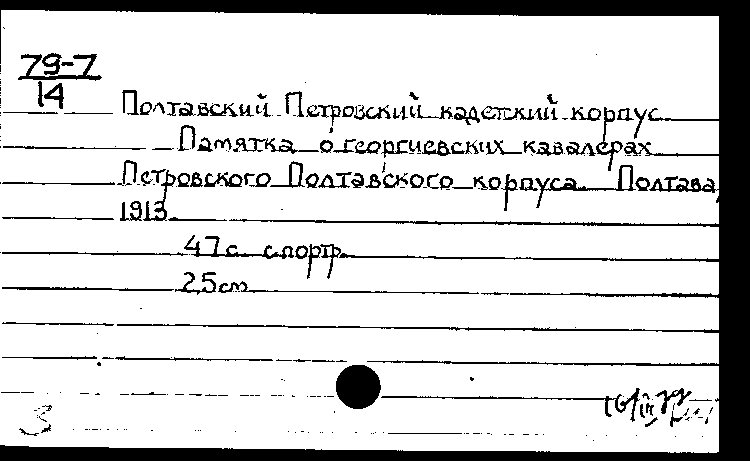 79-7
14
Полтавский Петровский кадетский корпус
Памятка о георгиевских кавалерах
Петровского Полтавского корпуса. Полтава,
1913.
47с. с портр.
25см
3